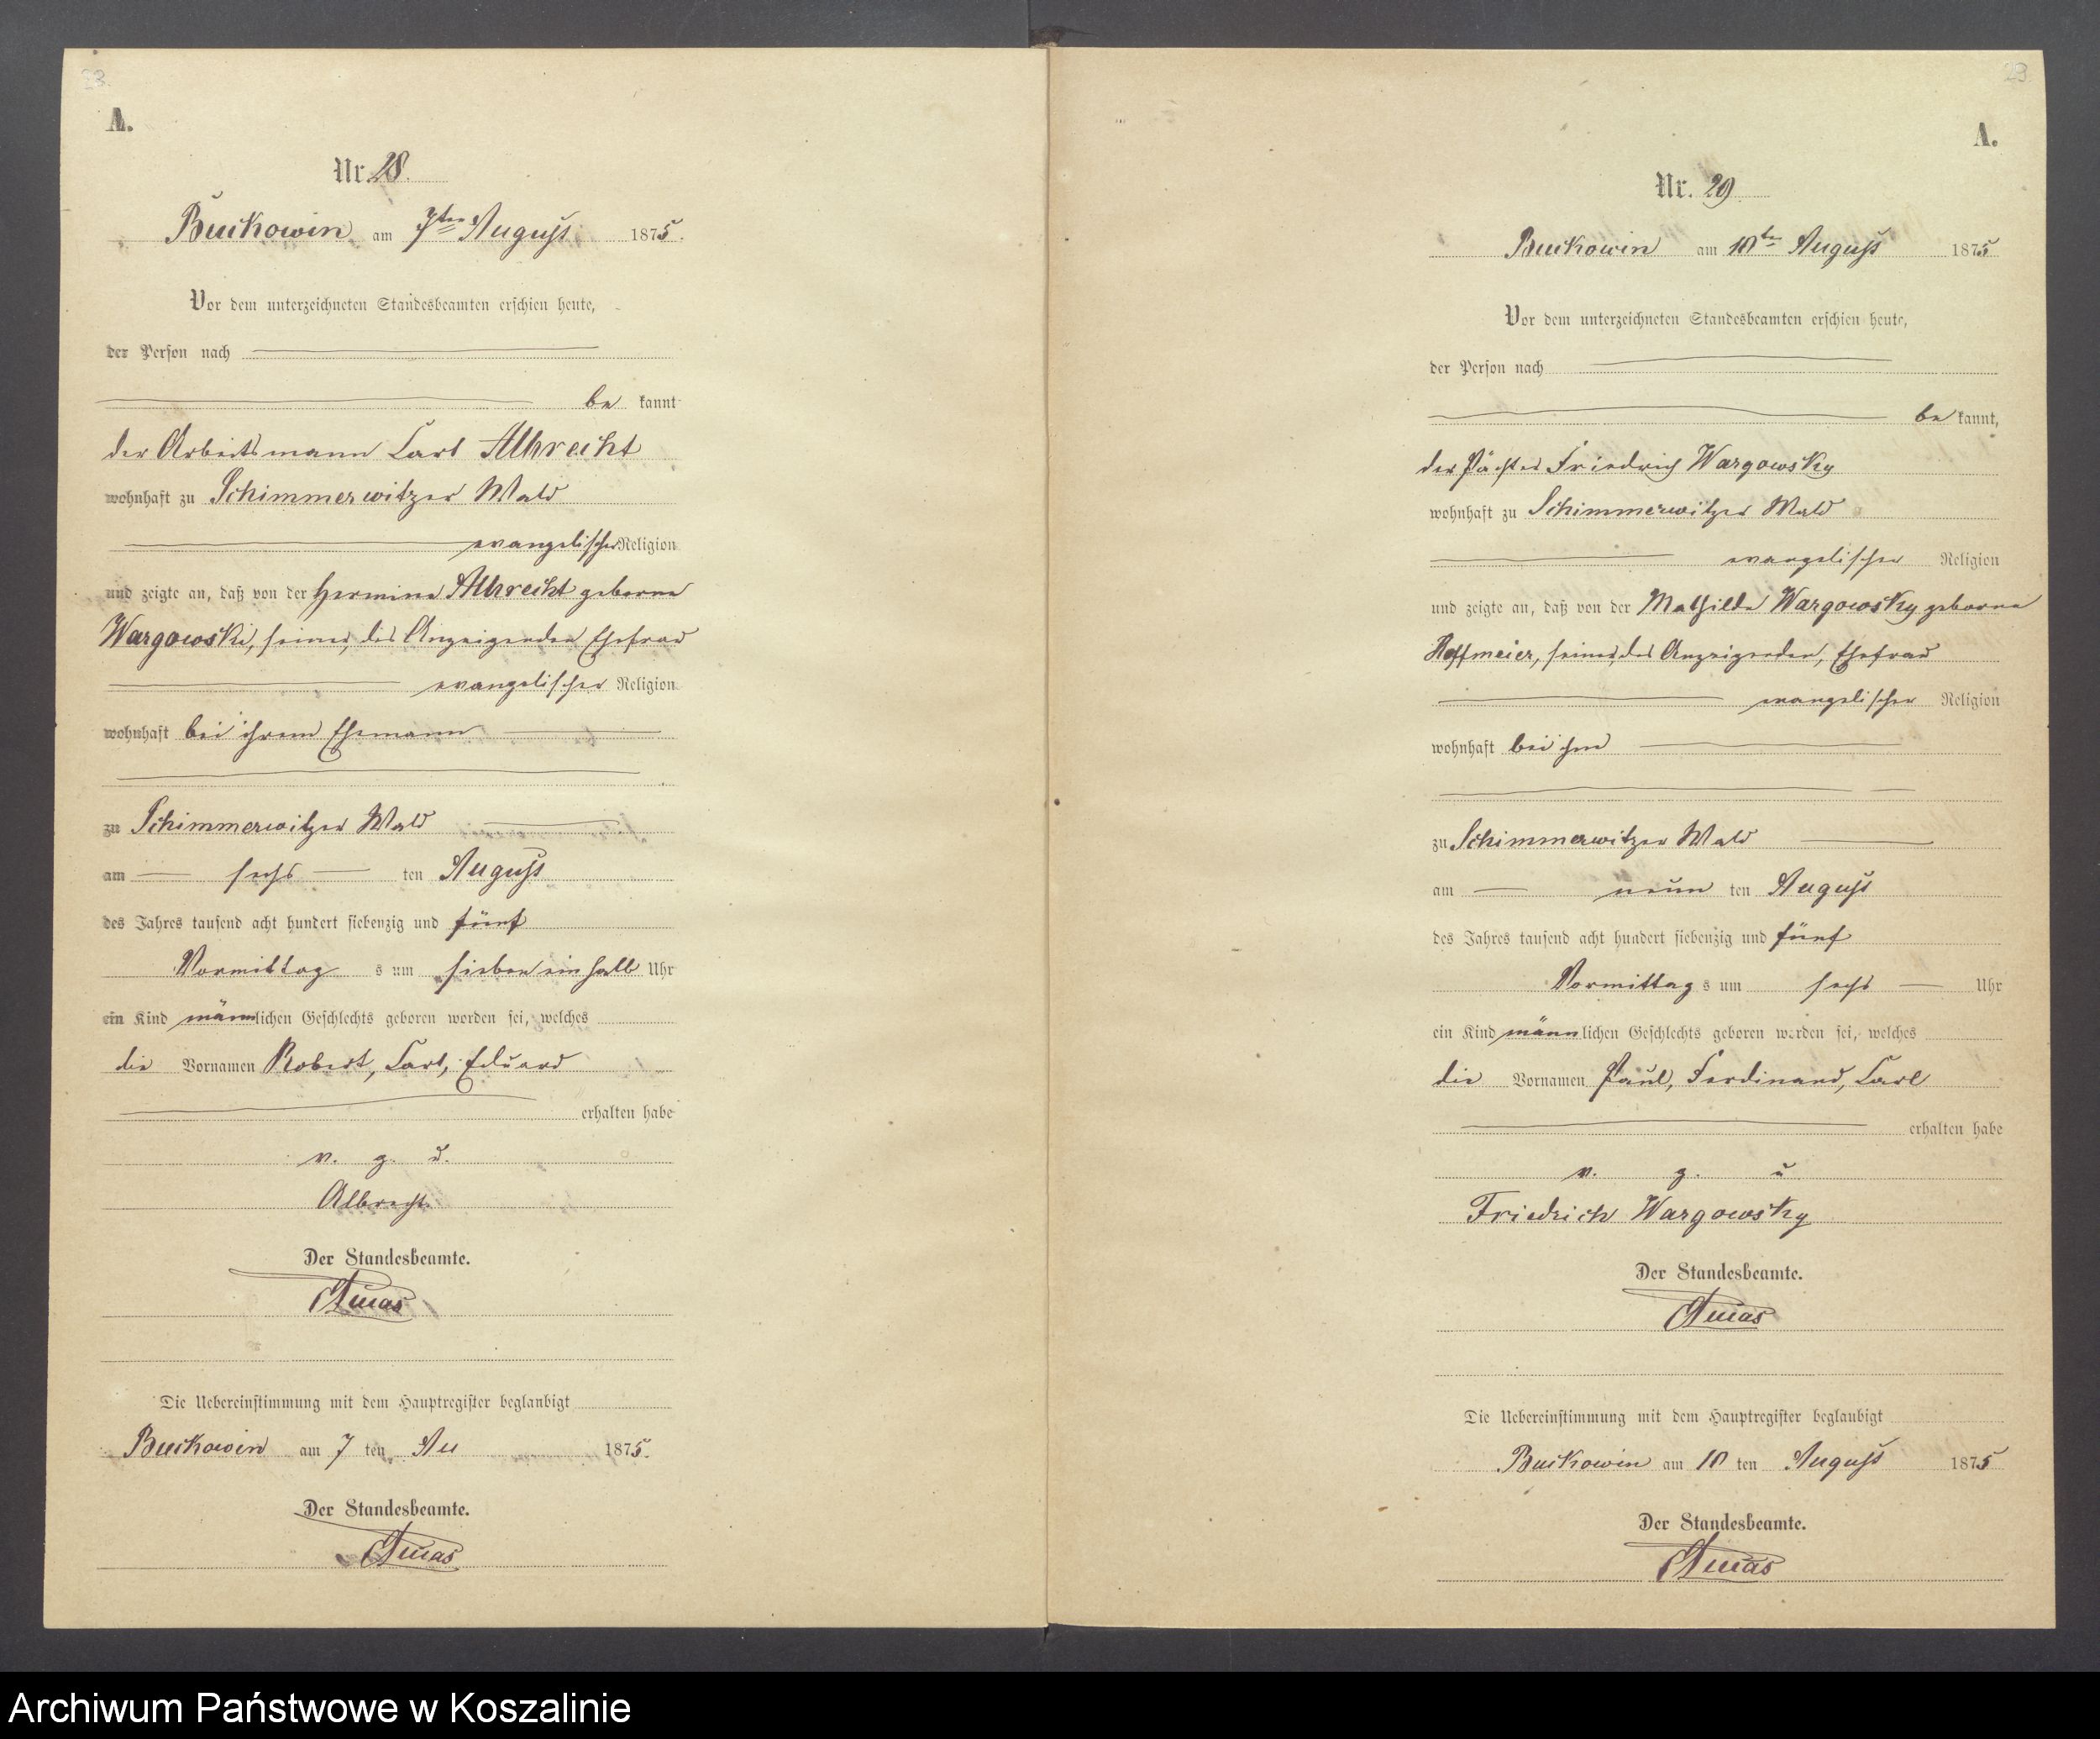 23.
A.
Nr. 28.
Buckowin am 7ten August 1875.
Vor dem unterzeichneten Standesbeamten erschien heute,
der Person nach
be kannt
der Arbeitsmann Carl Albrecht
wohnhaft zu Schimmerwitzer Wald
evangelischer Religion
und zeigte an, daß von der Hermine Albrecht geborne
Wargowski, seiner, des Anzeigenden Ehefrau
evangelischer Religion
wohnhaft bei ihrem Ehemann
zu Schimmerwitzer Wald
am sechs ten August
des Jahres tausend acht hundert siebenzig und fünf
Vormittag s um sieben ein halb Uhr
ein Kind männlichen Geschlechts geboren worden sei, welches
die Vornamen Robert, Carl, Eduard
erhalten habe
v. g. u.
Albrecht.
Der Standesbeamte.
Die Uebereinstimmung mit dem Hauptregister beglaubigt
Buckowin am 7 ten Au 1875.
Der Standesbeamte.
23
A.
Nr. 29
Buckowin am 10te August 1875
Vor dem unterzeichneten Standesbeamten erschien heute,
der Person nach
be kannt,
der Pächter Friedrich Wargowsky
wohnhaft zu Schimmerwitzer Wald
evangelischer Religion
und zeigte an, daß von der Mathilde Wargowsky geborne
Hoffmeier, seiner, des Anzeigenden, Ehefrau
evangelischer Religion
wohnhaft bei ihm
zu Schimmerwitzer Wald
am neun ten August
des Jahres tausend acht hundert siebenzig und fünf
Vormittag s um sechs Uhr
ein Kind männlichen Geschlechts geboren worden sei, welches
die Vornamen Paul, Ferdinand, Carl
erhalten habe
v. g. u.
Friedrich Wargowsky
Der Standesbeamte.
Die Uebereinstimmung mit dem Hauptregister beglaubigt
Buckowin am 10 ten August 1875
Der Standesbeamte.
Archiwum Państwowe w Koszalinie